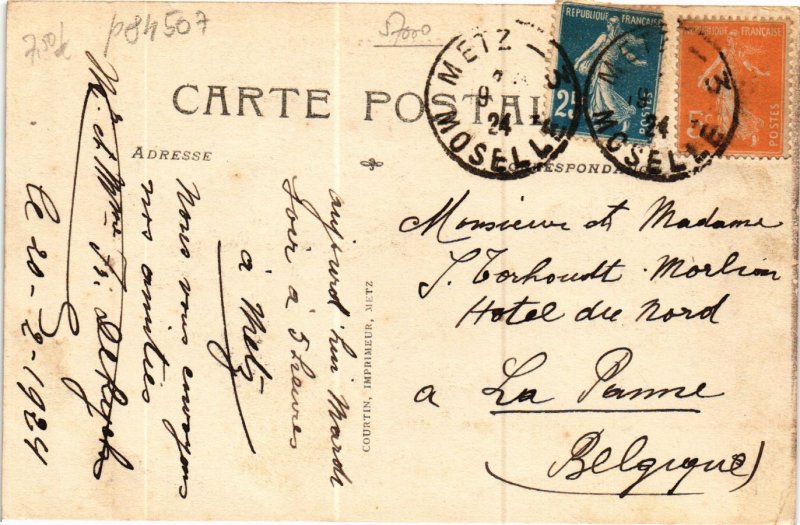 7,50f
p84507
CARTE POSTALE
ADRESSE
CORRESPONDANCE
METZ
3
9
24
MOSELLE
REPUBLIQUE FRANÇAISE
25
POSTES
METZ
3
9
24
MOSELLE
REPUBLIQUE FRANÇAISE
5c
POSTES
Monsieur et Madame
J. Torhoudt-Morlion
Hotel du Nord
a La Panne
(Belgique)
COURTIN, IMPRIMEUR, METZ
aujourd'hui Mardi
Soir à 5 heures
à Metz
Nous vous envoyons
nos amitiés
Mr et Mme
le 20-2-1924